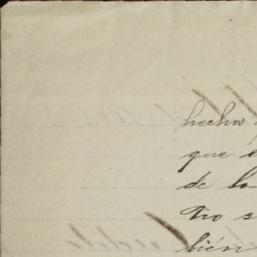 hecho
que
de la
tro s
bién